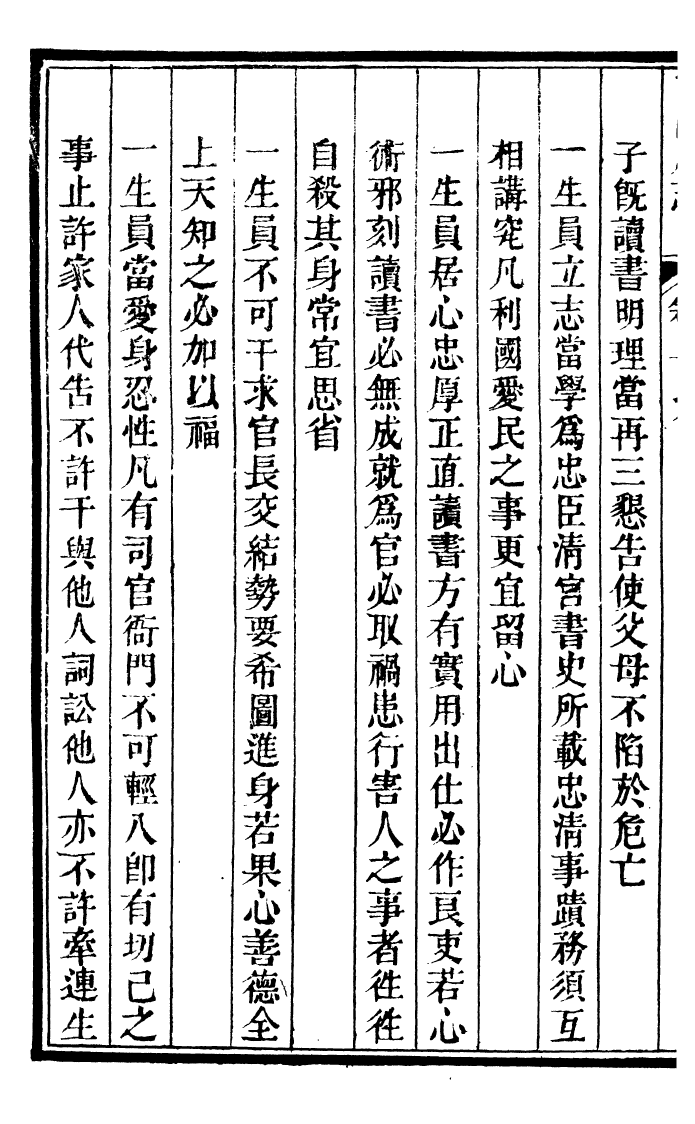 子旣讀書明理當再三懇告使父母不陷於危亡
一生員立志當學爲忠臣淸官書史所載忠淸事蹟務須互
相講究凡利國愛民之事更宜留心
一生員居心忠厚正直讀書方有實用出仕必作良吏若心
術邪刻讀書必無成就爲官必取禍患行害人之事者徃徃
自殺其身常宜思省
一生員不可干求官長交結勢要希圖進身若果心善德全
上天知之必加以福
一生員當愛身忍性凡有司官衙門不可輕入卽有切己之
事止許家人代告不許干與他人詞訟他人亦不許牽連生